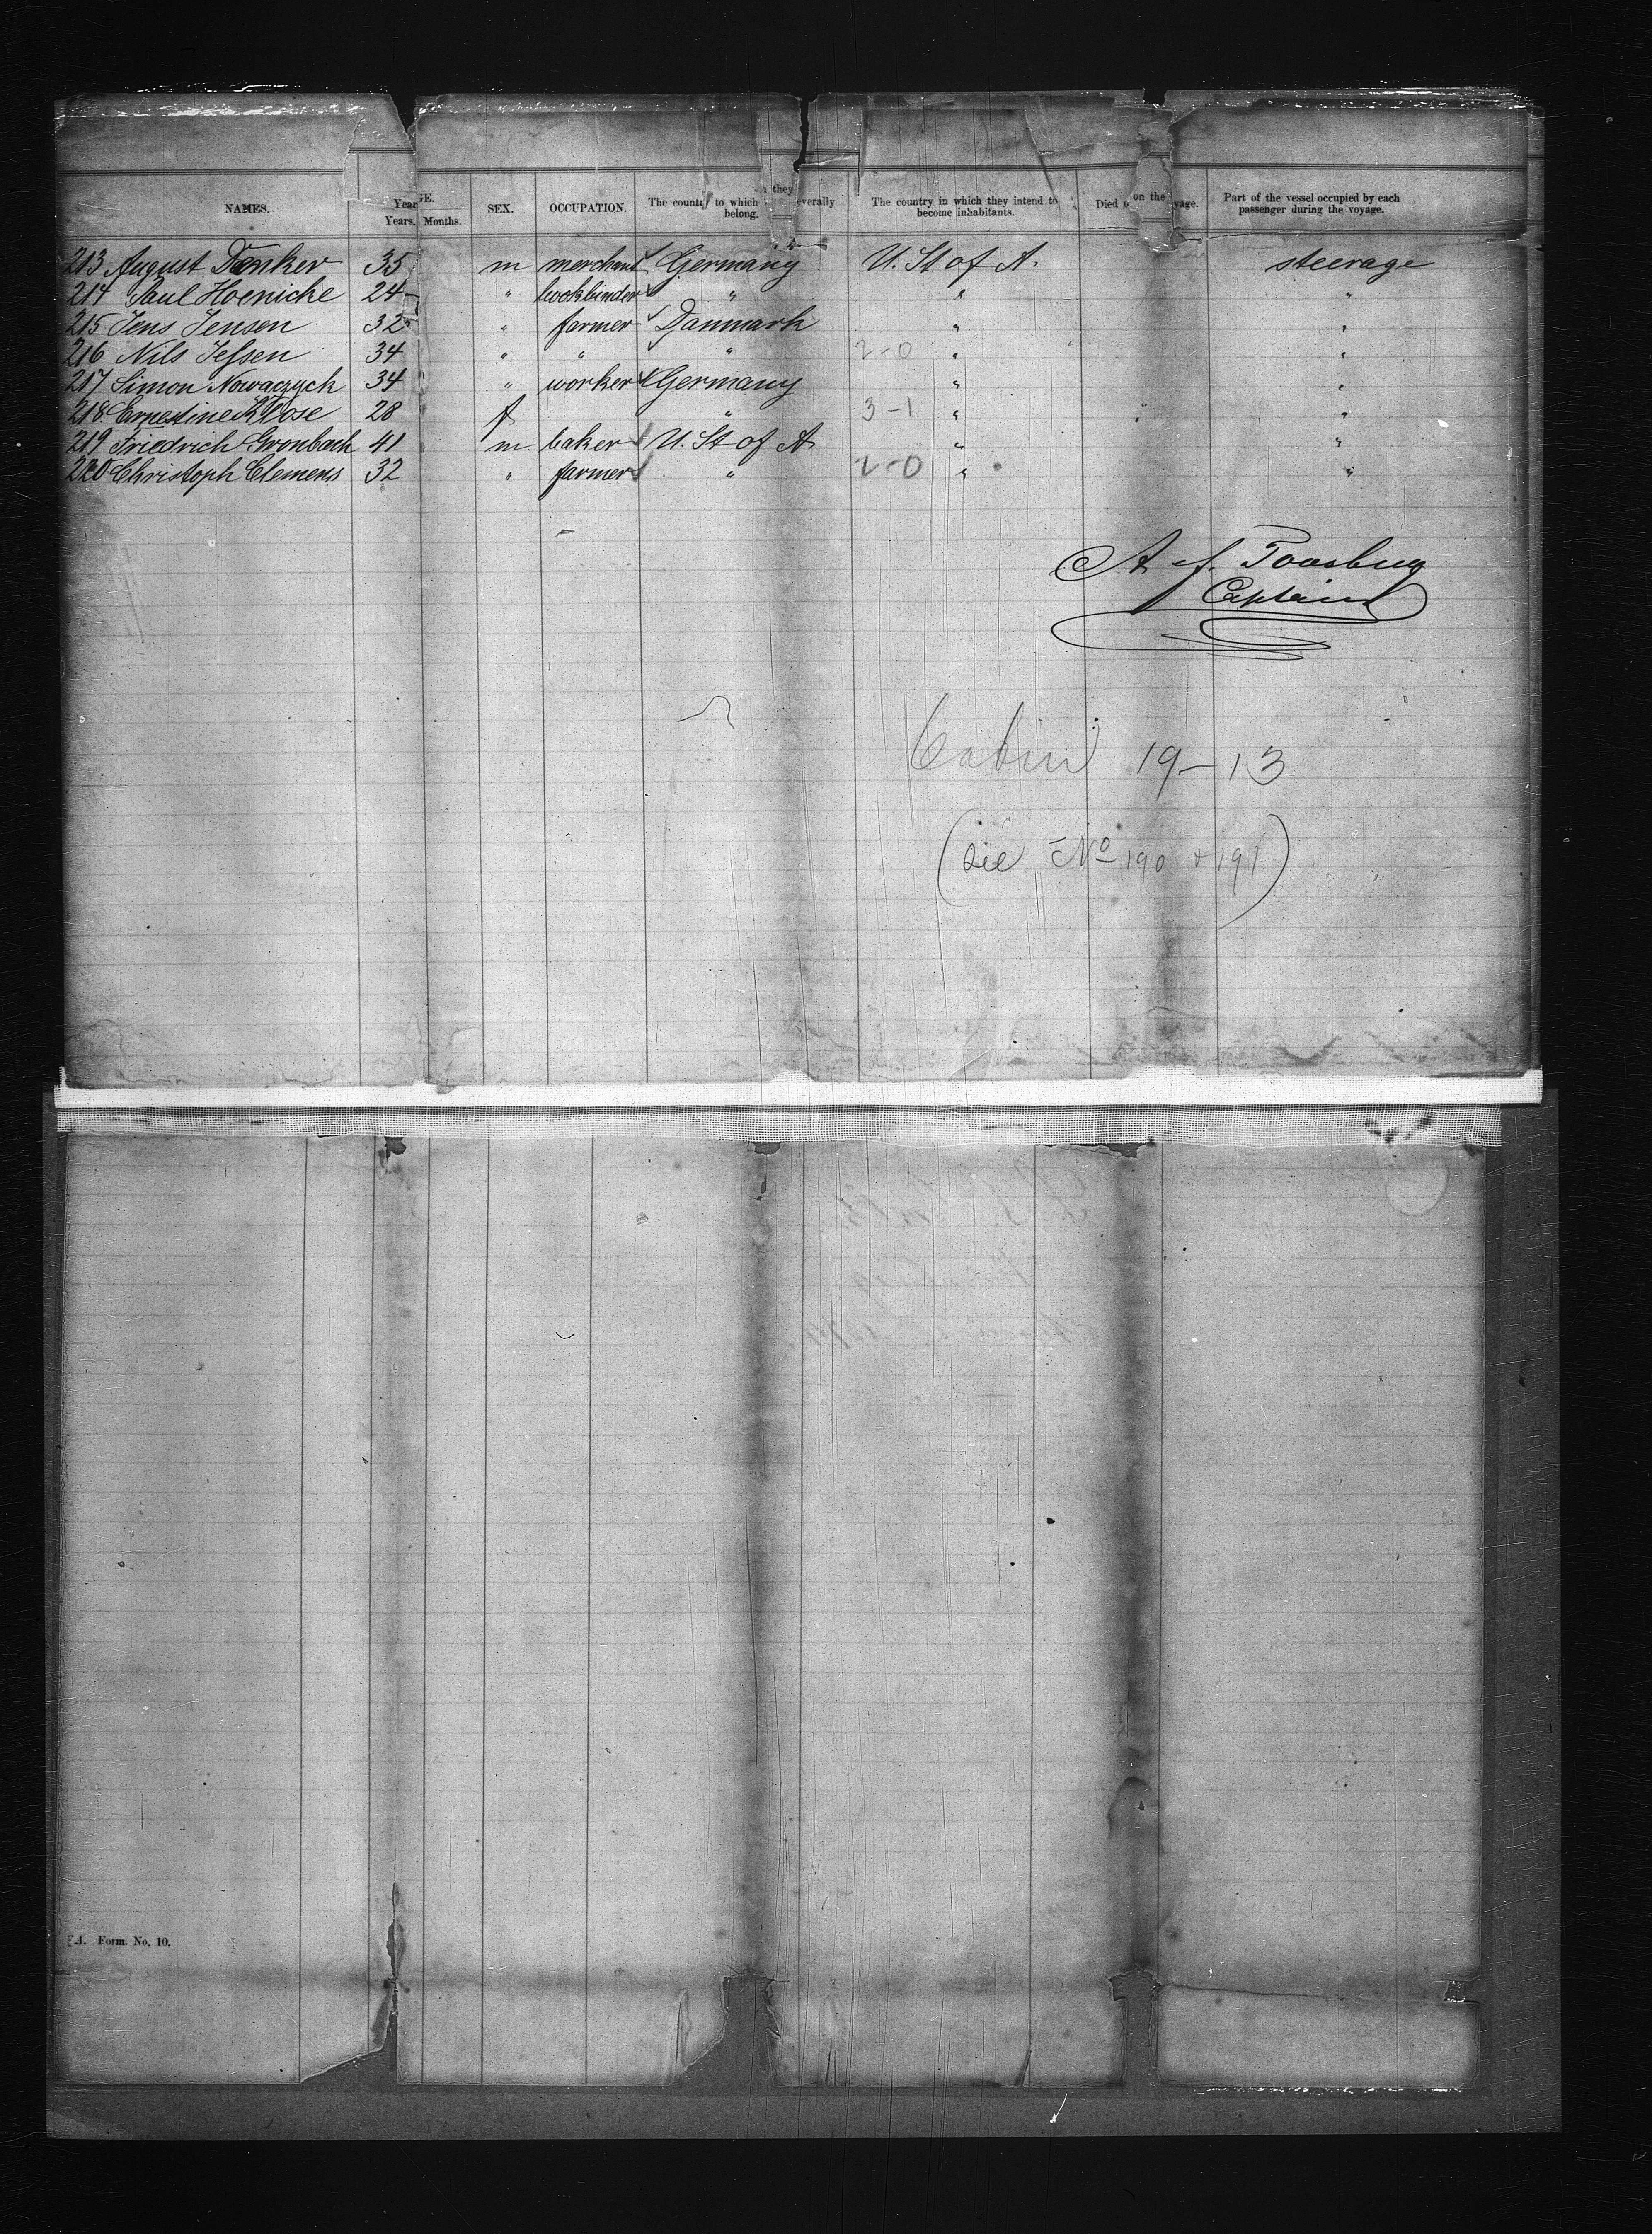 NAMES. AGE. Years. Months. SEX. OCCUPATION. The country to which they severally belong. The country in which they intend to become inhabitants. Died on the voyage. Part of the vessel occupied by each passenger during the voyage.
213 August Denker 35 m merchant Germany U. St of A. steerage
214 Paul Hoenicke 24 " bookbinder " " "
215 Jens Jensen 32 " farmer Danmark " "
216 Nils Jessen 34 " " " 2-0 " "
217 Simon Nowaczyck 34 " worker Germany " "
218 Ernestine Klose 28 f " 3-1 " "
219 Friedrich Gronbach 41 m. baker U. St of A. " "
220 Christoph Clemens 32 " farmer " 2-0 " "
Captain
Cabin 19-13
(see No 190 + 191)
Form. No. 10.